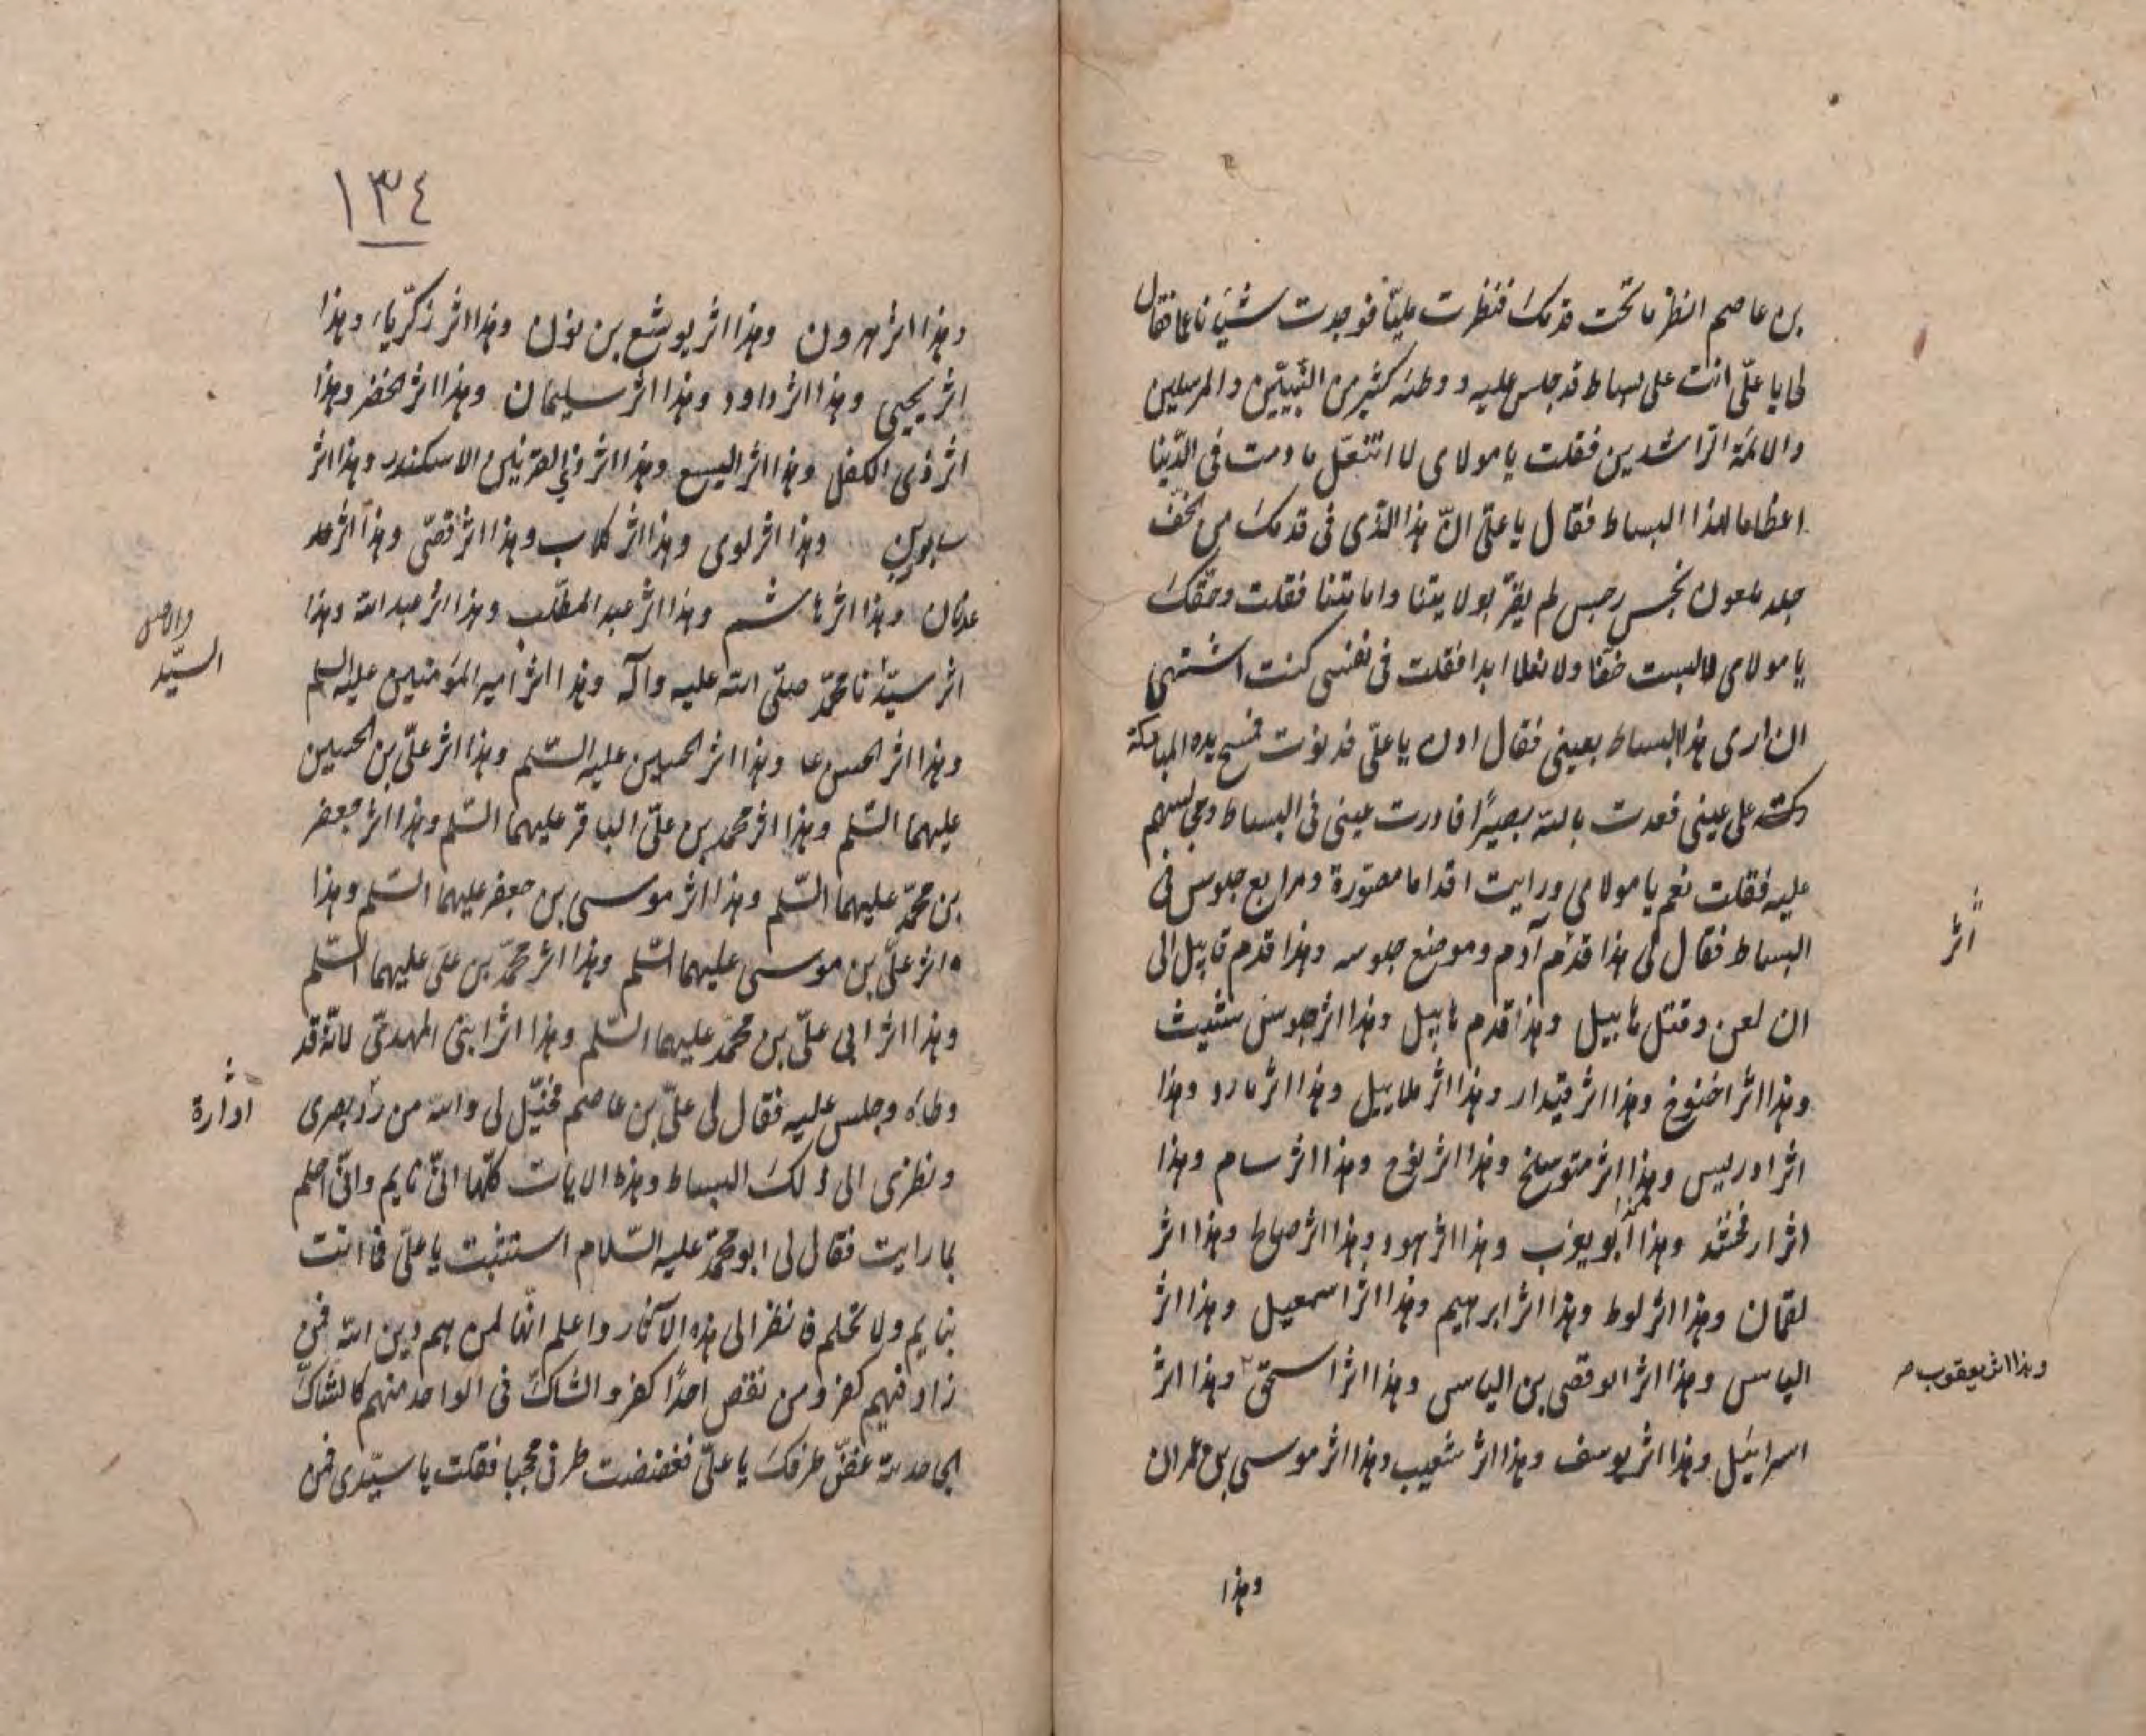 بن عاصم انظر ما تحت قدمك فنظرت مليّا فوجدت شيئا ناعما فقال
لى يا علىّ انت على بساط قد جلس عليه و وطئه كثير من النّبيّين والمرسلين
والائمّة الرّاشدين فقلت يا مولاى لا انتعل ما دمت فى الدّنيا
اعظاما لهذا البساط فقال يا علىّ انّ هذا الّذى فى قدمك من الخفّ
جلد ملعون نجس رجس لم يقرّ بولايتنا وامامتنا فقلت وحقّك
يا مولاى لا لبست خفّا ولا نعلا ابدا فقلت فى نفسى كنت اشتهى
ان ارى هذا البساط بعينى فقال ادن يا علىّ فدنوت فمسح يده المباركة
على عينى فعدت بالله بصيرًا فادرت عينى فى البساط ومجالسهم
عليه فقلت نعم يا مولاى ورايت اقداما مصوّرة ومرابع جلوس فى
البساط فقال لى هذا قدم آدم وموضع جلوسه وهذا قدم قابيل الى
ان لعن وقتل هابيل وهذا قدم هابيل وهذا اثر جلوس شيث
وهذا اثر اخنوخ وهذا اثر قيدار وهذا اثر هلابيل وهذا اثر يارد وهذا
اثر ادريس وهذا اثر متوسلخ وهذا اثر نوح وهذا اثر سام وهذا
اثر ارفخشد وهذا ابو يعرب وهذا اثر هود وهذا اثر صالح وهذا اثر
لقمان وهذا اثر لوط وهذا اثر ابرهيم وهذا اثر اسمعيل وهذا اثر
الياس وهذا اثر ابو قصى بن الياس وهذا اثر اسحق وهذا اثر
اسرائيل وهذا اثر يوسف وهذا اثر شعيب وهذا اثر موسى بن عمران
وهذا
اثر
وهذا اثر يعقوب
١٣٤
وهذا اثر هرون وهذا اثر يوشع بن نون وهذا اثر زكريّاء وهذا
اثر يحيى وهذا اثر داود وهذا اثر سليمان وهذا اثر الخضر وهذا
اثر ذى الكفل وهذا اثر اليسع وهذا اثر ذى القرنين الاسكندر وهذا اثر
سابور وهذا اثر لوى وهذا اثر كلاب وهذا اثر قصّى وهذا اثر
عدنان وهذا اثر هاشم وهذا اثر عبد المطّلب وهذا اثر عبد الله وهذا
اثر سيّدنا محمّد صلّى الله عليه وآله وهذا اثر امير المؤمنين عليه السلم
وهذا اثر الحسن ع وهذا اثر الحسين عليه السّلم وهذا اثر علىّ بن الحسين
عليهما السّلم وهذا اثر محمد بن علىّ الباقر عليهما السّلم وهذا اثر جعفر
بن محمّد عليهما السّلم وهذا اثر موسى بن جعفر عليهما السّلم وهذا
اثر علىّ بن موسى عليهما السّلم وهذا اثر محمّد بن على عليهما السّلم
وهذا اثر ابى علىّ بن محمّد عليهما السّلم وهذا اثر ابنى المهدىّ لانّه قد
وطأه وجلس عليه فقال لى علىّ بن عاصم فخيّل لى والله من ردّ بصرى
ونظرى الى ذلك البساط وهذه الايات كلّها انّى نايم وانّى احلم
بما رايت فقال لى ابو محمّد عليه السّلام استثبت يا علىّ فما انت
بنايم ولا تحلم فانظر الى هذه الآثار واعلم انّها لمن هم دين الله فمن
زاد فيهم كفر ومن نقص احدًا كفر والشاكّ فى الواحد منهم كالشاكّ
الجاحد لله غضّ طرفك يا علىّ فغضضت طرفى محجبا فقلت يا سيّدى فمن
السيّد